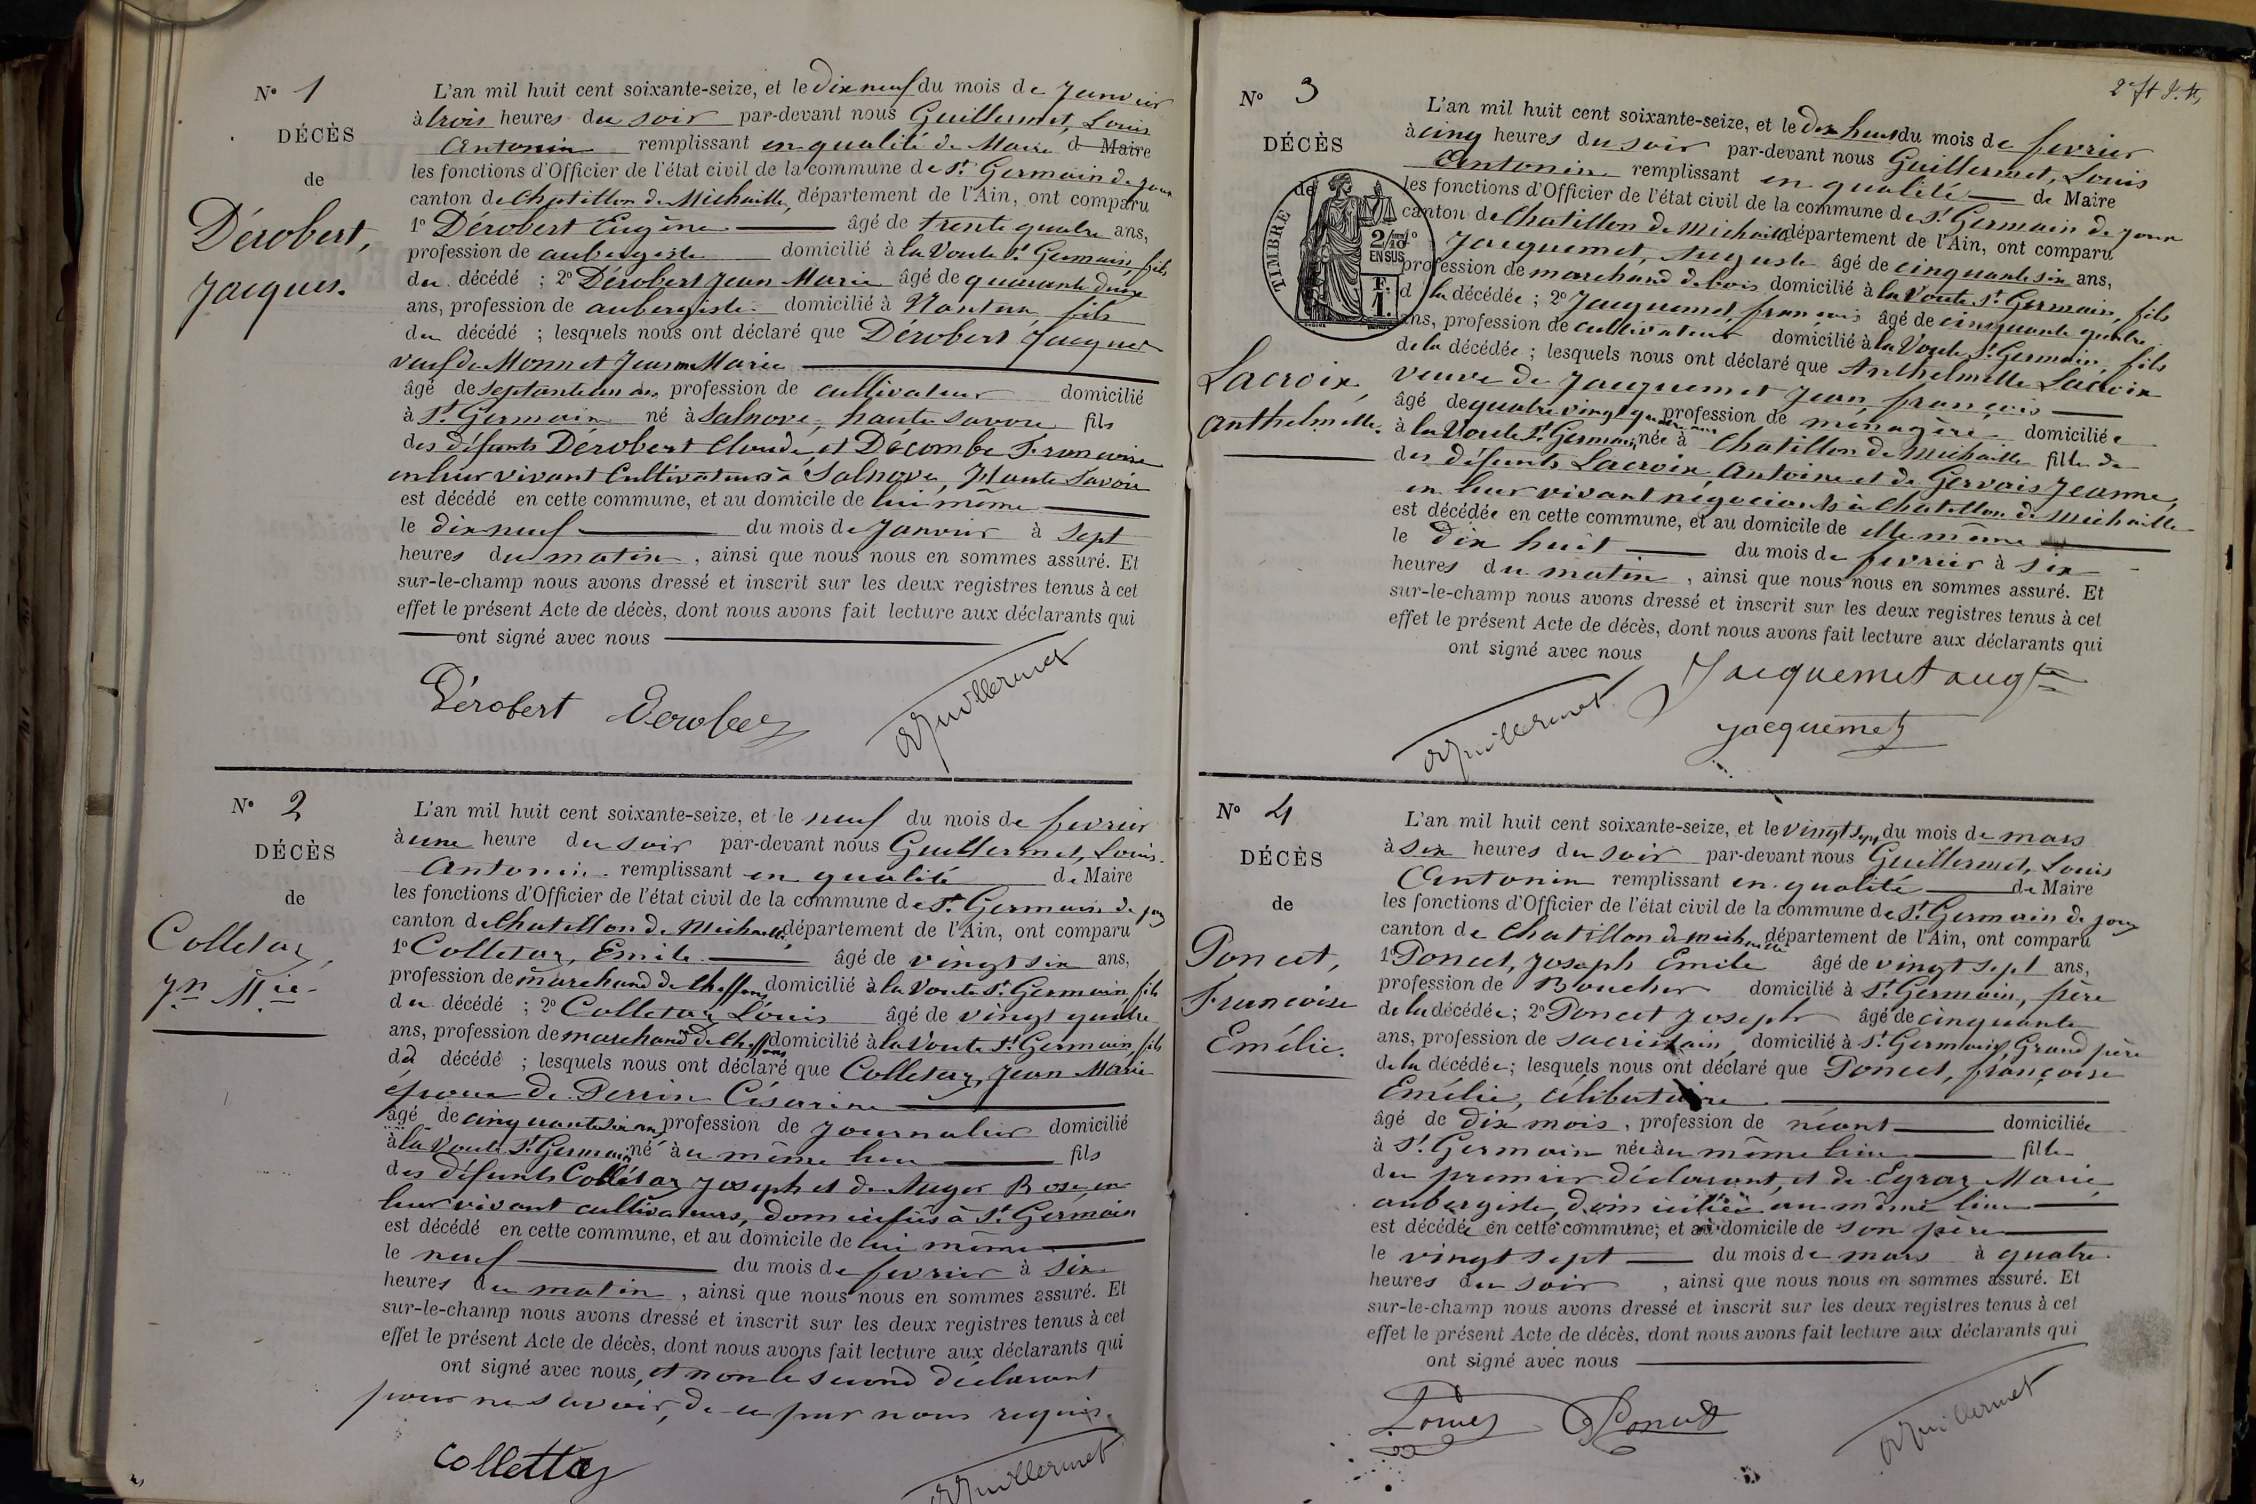 N° 1
DÉCÈS
de
Dérobert,
Jacques.
L'an mil huit cent soixante-seize, et le dix neuf du mois de Janvier
à trois heures du soir par-devant nous Guillermet, Louis
Antonin remplissant en qualité de Maire d Maire
les fonctions d'Officier de l'état civil de la commune de St Germain de joux
canton de Chatillon de Michaille, département de l'Ain, ont comparu
1° Dérobert Eugène âgé de trente quatre ans,
profession de aubergiste domicilié à la Voute St Germain, fils
du décédé ; 2° Dérobert Jean Marie âgé de quarante deux
ans, profession de aubergiste domicilié à Nantua fils
du décédé ; lesquels nous ont déclaré que Dérobert Jacques
veuf de Monnet Jeanne Marie
âgé de septante un ans, profession de cultivateur domicilié
à St Germain né à Salnove, haute savoie fils
des défunts Dérobert Claude et Decombe Francoise
en leur vivant Cultivateurs à Salnove, Haute Savoie
est décédé en cette commune, et au domicile de lui même
le dix neuf du mois de Janvier à sept
heures du matin, ainsi que nous nous en sommes assuré. Et
sur-le-champ nous avons dressé et inscrit sur les deux registres tenus à cet
effet le présent Acte de décès, dont nous avons fait lecture aux déclarants qui
ont signé avec nous
Dérobert Derobert Guillermet
N° 2
DÉCÈS
de
Colletaz,
Jn Mie
L'an mil huit cent soixante-seize, et le neuf du mois de fevrier
à une heure du soir par-devant nous Guillermet, Louis
Antonin remplissant en qualité de Maire
les fonctions d'Officier de l'état civil de la commune de St Germain de joux
canton de Chatillon de Michaille, département de l'Ain, ont comparu
1° Colletaz, Emile âgé de vingt six ans,
profession de marchand de chiffons domicilié à la Voute St Germain, fils
du décédé ; 2° Colletaz Louis âgé de vingt quatre
ans, profession de marchand de chiffons domicilié à la Voute St Germain, fils
du décédé ; lesquels nous ont déclaré que Colletaz, Jean Marie
époux de Perrin Césarine
âgé de cinquante six ans, profession de Journalier domicilié
à la Voute St Germain né au même lieu fils
des défunts Collétaz Joseph et de Auger Rose, en
leur vivant cultivateurs, domiciliés à St Germain
est décédé en cette commune, et au domicile de lui même
le neuf du mois de fevrier à six
heures du matin, ainsi que nous nous en sommes assuré. Et
sur-le-champ nous avons dressé et inscrit sur les deux registres tenus à cet
effet le présent Acte de décès, dont nous avons fait lecture aux déclarants qui
ont signé avec nous, et non le second déclarant
pour ne savoir, de ce par nous requis.
Collettaz Guillermet
N° 3
DÉCÈS
de
TIMBRE
2/10
EN SUS
F.
1.
Lacroix,
Anthelmette.
L'an mil huit cent soixante-seize, et le dix huit du mois de fevrier
à cinq heures du soir par-devant nous Guillermet, Louis
Antonin remplissant en qualité de Maire
les fonctions d'Officier de l'état civil de la commune de St Germain de joux
canton de Chatillon de Michaille département de l'Ain, ont comparu
1° Jacquemet, Auguste âgé de cinquante six ans,
profession de marchand de bois domicilié à la Voute St Germain, fils
d la décédée ; 2° Jacquemet, françois âgé de cinquante quatre
ans, profession de cultivateur domicilié à la Voute St Germain, fils
de la décédée ; lesquels nous ont déclaré que Anthelmette Lacroix
veuve de Jacquemet Jean françois
âgé de quatre vingt quatre ans profession de ménagère domiciliée
à la Voute St Germain, née à Chatillon de Michaille fille de
des défunts Lacroix Antoine et de Gervais Jeanne,
en leur vivant négociants à Chatillon de Michaille
est décédée en cette commune, et au domicile de elle même
le dix huit du mois de fevrier à six
heures du matin, ainsi que nous nous en sommes assuré. Et
sur-le-champ nous avons dressé et inscrit sur les deux registres tenus à cet
effet le présent Acte de décès, dont nous avons fait lecture aux déclarants qui
ont signé avec nous
Jacquemet augte
Guillermet Jacquemet
N° 4
DÉCÈS
de
Poncet,
Francoise
Emélie.
L'an mil huit cent soixante-seize, et le vingt sept du mois de mars
à six heures du soir par-devant nous Guillermet, Louis
Antonin remplissant en qualité de Maire
les fonctions d'Officier de l'état civil de la commune de St Germain de joux
canton de Chatillon de michaille département de l'Ain, ont comparu
1° Poncet, Joseph Emile âgé de vingt sept ans,
profession de Boucher domicilié à St Germain, père
de la décédée ; 2° Poncet Joseph âgé de cinquante
ans, profession de sacristain, domicilié à St Germain, Grand père
de la décédée ; lesquels nous ont déclaré que Poncet, françoise
Emélie, célibataire
âgé de dix mois, profession de néant domiciliée
à St Germain née au même lieu fille
du premier déclarant, et de Egraz Marie,
aubergiste, domiciliée au même lieu
est décédée en cette commune, et au domicile de son père
le vingt sept du mois de mars à quatre
heures du soir, ainsi que nous nous en sommes assuré. Et
sur-le-champ nous avons dressé et inscrit sur les deux registres tenus à cet
effet le présent Acte de décès, dont nous avons fait lecture aux déclarants qui
ont signé avec nous
Poncet Poncet Guillermet